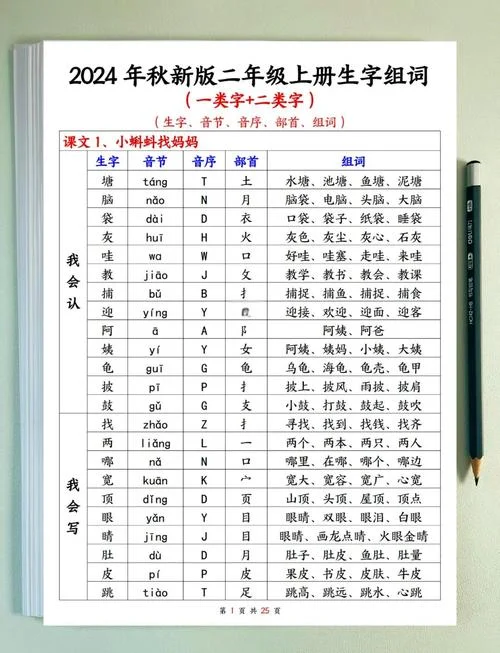 2024年秋新版二年级上册生字组词
（一类字+二类字）
（生字、音节、音序、部首、组词）
课文1、小蝌蚪找妈妈
生字 音节 音序 部首 组词
我会认
塘 táng T 土 水塘、池塘、鱼塘、泥塘
脑 nǎo N 月 脑袋、电脑、头脑、大脑
袋 dài D 衣 口袋、袋子、纸袋、睡袋
灰 huī H 火 灰色、灰尘、灰心、石灰
哇 wa W 口 好哇、哇塞、走哇、来哇
教 jiāo J 攵 教学、教书、教会、教课
捕 bǔ B 扌 捕捉、捕鱼、捕捞、捕食
迎 yíng Y 迎接、欢迎、迎面、迎客
阿 ā A 阝 阿姨、阿爸
姨 yí Y 女 阿姨、姨妈、小姨、大姨
龟 guī G 龟 乌龟、海龟、龟壳、龟甲
披 pī P 扌 披上、披风、雨披、披肩
鼓 gǔ G 支 小鼓、打鼓、鼓起、鼓吹
我会写
找 zhǎo Z 扌 寻找、找到、找钱、找齐
两 liǎng L 一 两个、两本、两只、两人
哪 nǎ N 口 哪里、在哪、哪个、哪边
宽 kuān K 宀 宽大、宽容、宽广、宽心
顶 dǐng D 页 山顶、头顶、屋顶、顶点
眼 yǎn Y 目 眼睛、双眼、眼泪、白眼
睛 jīng J 目 眼睛、画龙点睛、火眼金睛
肚 dù D 月 肚子、肚皮、鱼肚、肚量
皮 pí P 皮 果皮、书皮、皮肤、牛皮
跳 tiào T 足 跳高、跳远、跳水、心跳
第 1 页 共 25 页